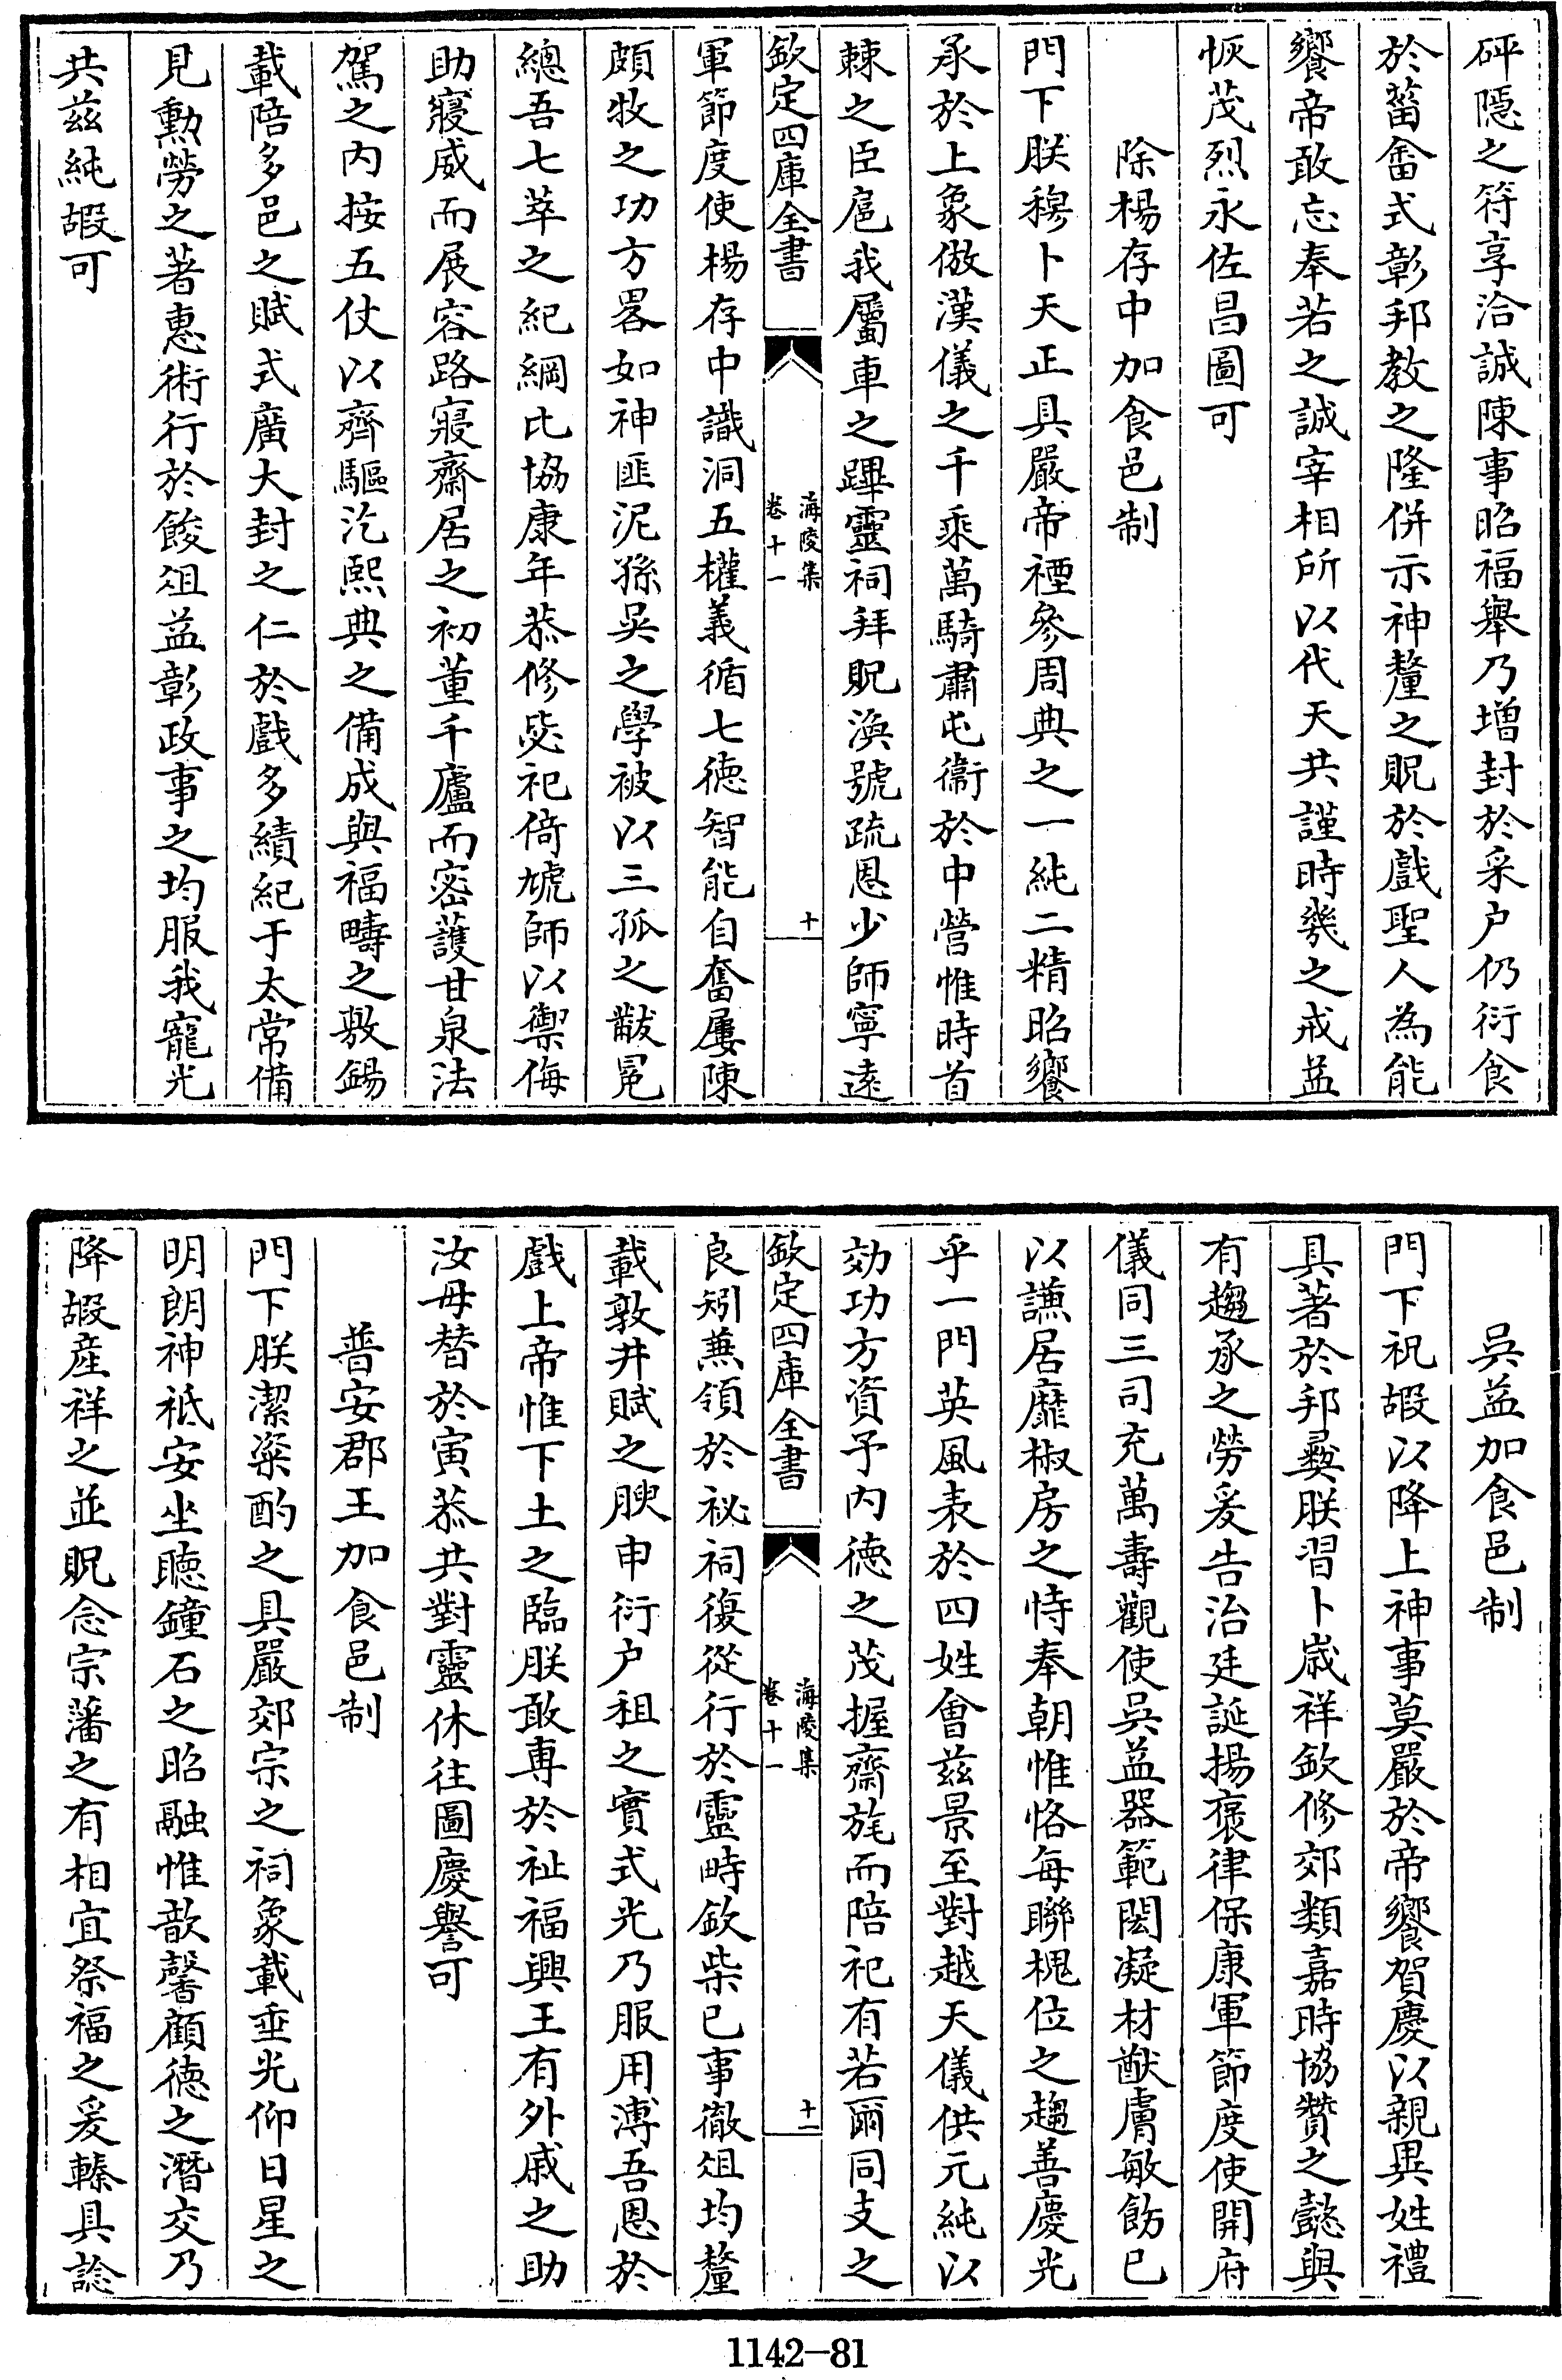 砰隱之符享洽誠陳事昭福舉乃增封於采户仍衍食
於菑畬式彰邦教之隆併示神釐之貺於戲聖人為能
饗帝敢忘奉若之誠宰相所以代天共謹時幾之戒益
恢茂烈永佐昌圖可
除楊存中加食邑制
門下朕穆卜天正具嚴帝禋參周典之一純二精昭饗
承於上象倣漢儀之千乘萬騎肅屯衞於中營惟時首
棘之臣扈我屬車之蹕靈祠拜貺渙號疏恩少師寧遠
欽定四庫全書
海陵集
卷十一
十
軍節度使楊存中識洞五權義循七徳智能自奮屢陳
頗牧之功方畧如神匪泥孫吴之學被以三孤之黻冕
總吾七萃之紀綱比協康年恭修毖祀倚虓師以禦侮
助寢威而展容路寢齋居之初董千廬而密護甘泉法
駕之内按五仗以齊驅汔熙典之備成與福疇之敷錫
載陪多邑之賦式廣大封之仁於戲多績紀于太常備
見勳勞之著惠術行於餕俎益彰政事之均服我寵光
共兹純嘏可
吳益加食邑制
門下祝嘏以降上神事莫嚴於帝饗賀慶以親異姓禮
具著於邦彞朕習卜嵗祥欽修郊類嘉時協贊之懿與
有趨承之勞爰告治廷誕揚褒律保康軍節度使開府
儀同三司充萬壽觀使吳益器範閎凝材猷膚敏飭已
以謙居靡椒房之恃奉朝惟恪每聯槐位之趨善慶光
乎一門英風表於四姓會兹景至對越天儀供元純以
効功方資予内徳之茂握齋旄而陪祀有若爾同支之
欽定四庫全書
海陵集
卷十一
十一
良矧兼領於祕祠復從行於靈畤欽柴已事徹俎均釐
載敦井賦之腴申衍户租之實式光乃服用溥吾恩於
戲上帝惟下土之臨朕敢専於祉福興王有外戚之助
汝毋替於寅恭共對靈休往圖慶譽可
普安郡王加食邑制
門下朕潔粢酌之具嚴郊宗之祠象載垂光仰日星之
明朗神祇安坐聽鐘石之昭融惟歆馨顧徳之潛交乃
降嘏産祥之並貺念宗藩之有相宜祭福之爰轃具諗
1142-81